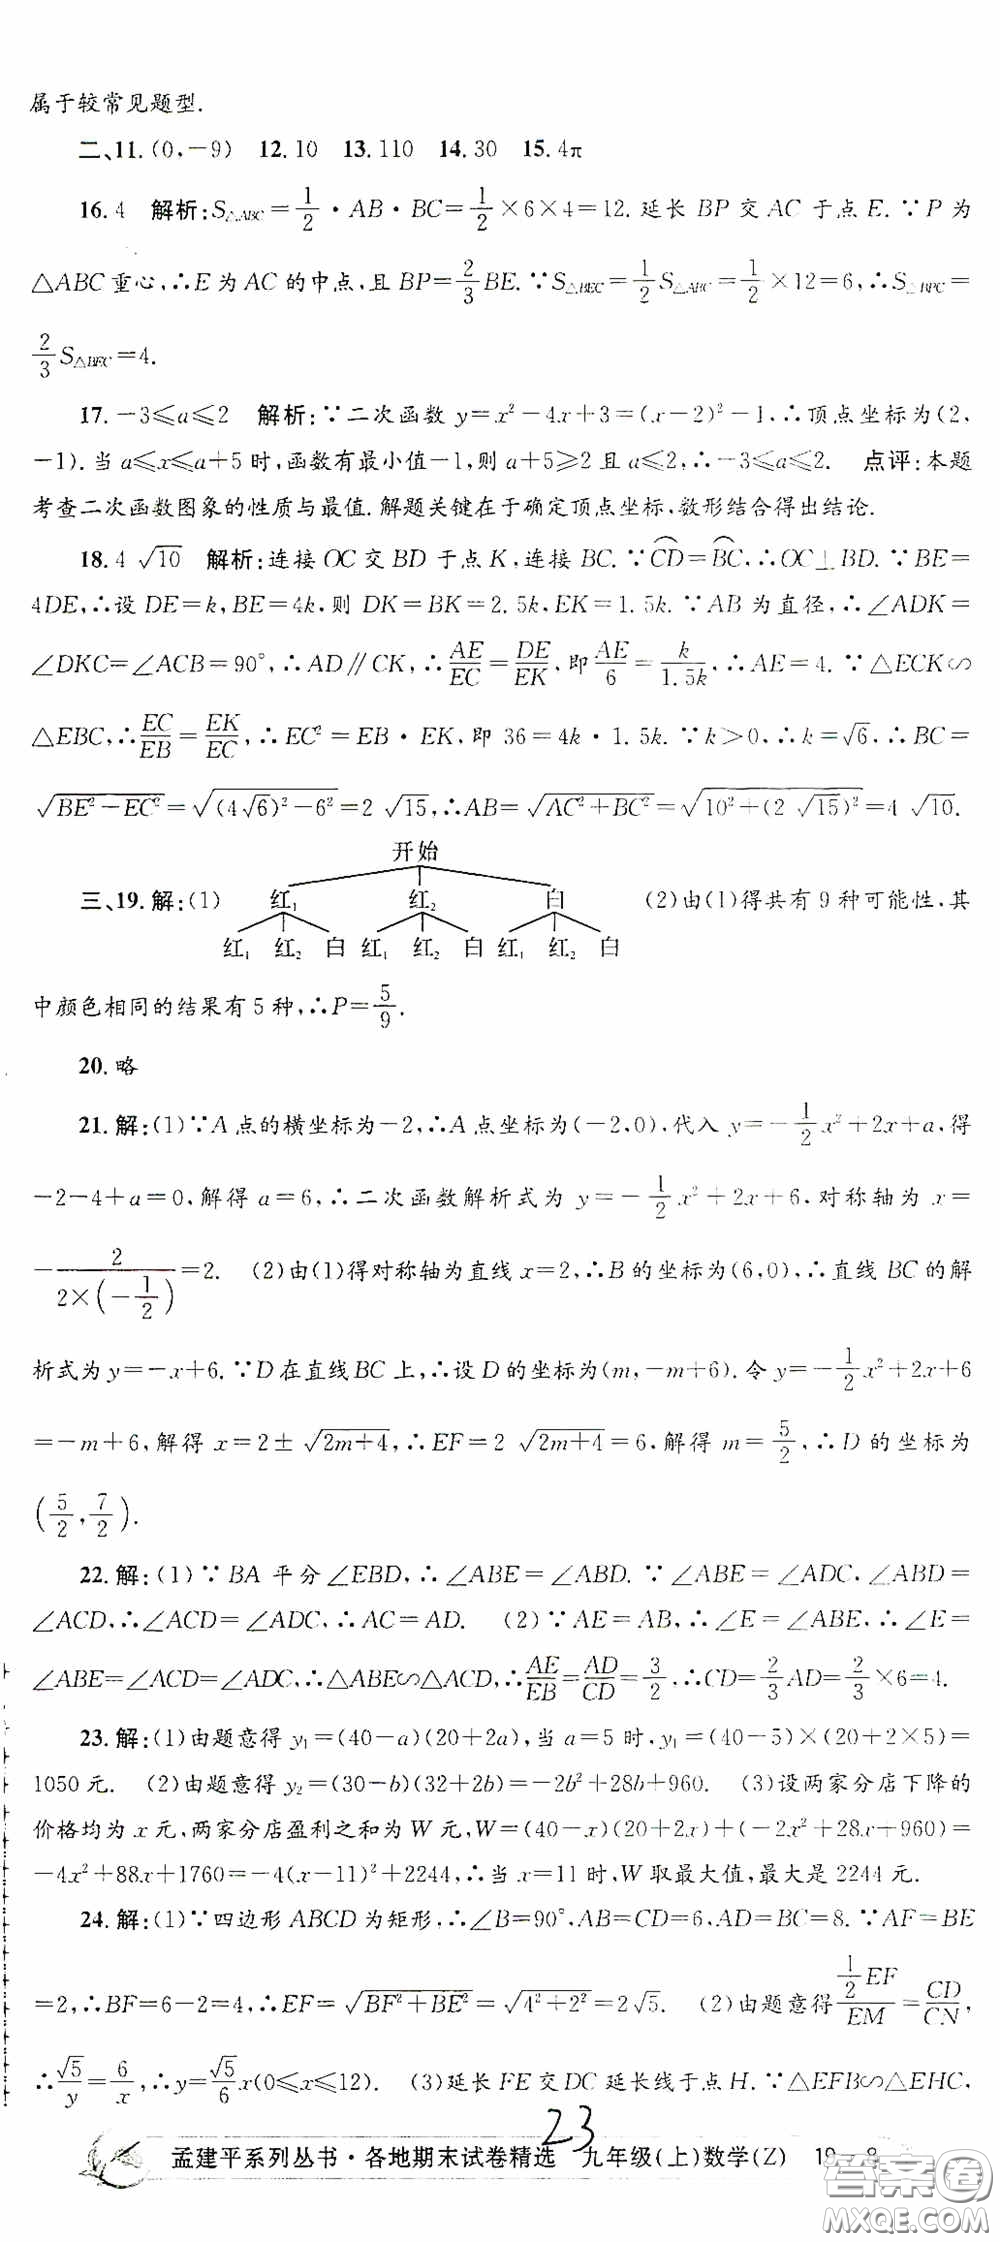 属于较常见题型.
二、11.(0,-9) 12.10 13.110 14.30 15.4π
16.4 解析:S△ABC=1/2·AB·BC=1/2×6×4=12.延长 BP 交 AC 于点 E.∵P 为
△ABC重心,∴E为AC的中点,且BP=2/3BE.∵S△BEC=1/2S△ABC=1/2×12=6,∴S△BPC=
2/3S△BEC=4.
17.-3≤a≤2 解析:∵二次函数 y=x²-4x+3=(x-2)²-1,∴顶点坐标为(2,
-1).当a≤x≤a+5时,函数有最小值-1,则a+5≥2且a≤2,∴-3≤a≤2. 点评:本题
考查二次函数图象的性质与最值.解题关键在于确定顶点坐标,数形结合得出结论.
18.4√10 解析:连接 OC 交 BD 于点 K,连接 BC.∵⌒CD=⌒BC,∴OC⊥BD.∵BE=
4DE,∴设 DE=k,BE=4k,则 DK=BK=2.5k,EK=1.5k.∵AB 为直径,∴∠ADK=
∠DKC=∠ACB=90°,∴AD∥CK,∴AE/EC=DE/EK,即AE/6=k/1.5k,∴AE=4.∵△ECK∽
△EBC,∴EC/EB=EK/EC,∴EC²=EB·EK,即 36=4k·1.5k.∵k>0,∴k=√6,∴BC=
√(BE²-EC²)=√((4√6)²-6²)=2√15,∴AB=√(AC²+BC²)=√(10²+(2√15)²)=4√10.
开始
三、19.解:(1) 红₁ 红₂ 白 (2)由(1)得共有9种可能性,其
红₁ 红₂ 白 红₁ 红₂ 白 红₁ 红₂ 白
中颜色相同的结果有5种,∴P=5/9.
20.略
21.解:(1)∵A点的横坐标为-2,∴A点坐标为(-2,0),代入 y=-1/2x²+2x+a,得
-2-4+a=0,解得 a=6,∴二次函数解析式为 y=-1/2x²+2x+6,对称轴为 x=
-2/(2×(-1/2))=2. (2)由(1)得对称轴为直线x=2,∴B的坐标为(6,0),∴直线BC的解
析式为y=-x+6.∵D在直线BC上,∴设D的坐标为(m,-m+6).令y=-1/2x²+2x+6
=-m+6,解得 x=2±√(2m+4),∴EF=2√(2m+4)=6,解得 m=5/2,∴D 的坐标为
(5/2,7/2).
22.解:(1)∵BA平分∠EBD,∴∠ABE=∠ABD.∵∠ABE=∠ADC,∠ABD=
∠ACD,∴∠ACD=∠ADC,∴AC=AD. (2)∵AE=AB,∴∠E=∠ABE,∴∠E=
∠ABE=∠ACD=∠ADC,∴△ABE∽△ACD,∴AE/EB=AD/CD=3/2,∴CD=2/3AD=2/3×6=4.
23.解:(1)由题意得y₁=(40-a)(20+2a),当a=5时,y₁=(40-5)×(20+2×5)=
1050元. (2)由题意得y₂=(30-b)(32+2b)=-2b²+28b+960. (3)设两家分店下降的
价格均为x元,两家分店盈利之和为W元,W=(40-x)(20+2x)+(-2x²+28x+960)=
-4x²+88x+1760=-4(x-11)²+2244,∴当x=11时,W取最大值,最大是2244元.
24.解:(1)∵四边形ABCD为矩形,∴∠B=90°,AB=CD=6,AD=BC=8.∵AF=BE
=2,∴BF=6-2=4,∴EF=√(BF²+BE²)=√(4²+2²)=2√5. (2)由题意得(1/2EF)/EM=CD/CN,
∴√5/y=6/x,∴y=√5/6x(0≤x≤12). (3)延长FE交DC延长线于点H.∵△EFB∽△EHC,
23
孟建平系列丛书·各地期末试卷精选 九年级(上)数学(Z) 19-8
答案卷
MXQE.COM